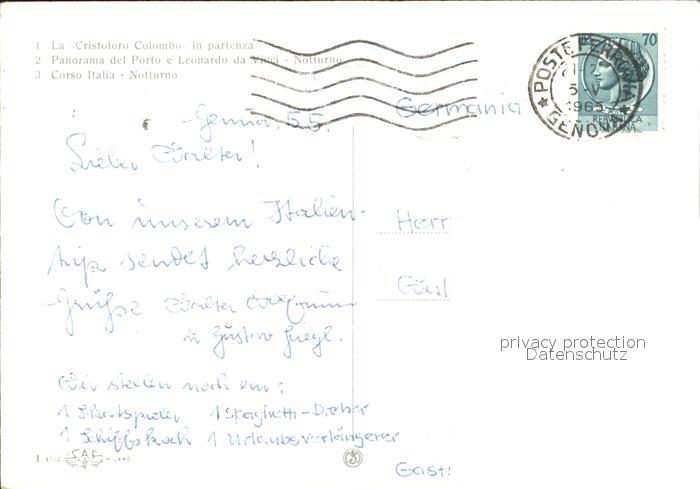 1 La «Cristoforo Colombo» in partenza
2 Panorama del Porto e Leonardo da Vinci - Notturno
3 Corso Italia - Notturno
70
POSTE FERROVIA
5 V
1965
GENOVA
Genua, 5.5.
Germania
Lieber Walter!
Von unserem Italien-
trip sendet herzliche
Grüße Walter
u Gustav
Herr
privacy protection
Datenschutz
Wir stellen noch ein:
1 Skatspieler 1 Spaghetti-Dreher
1 Schiffskoch 1 Urlaubsverlängerer
1
S.A.F.
MILANO